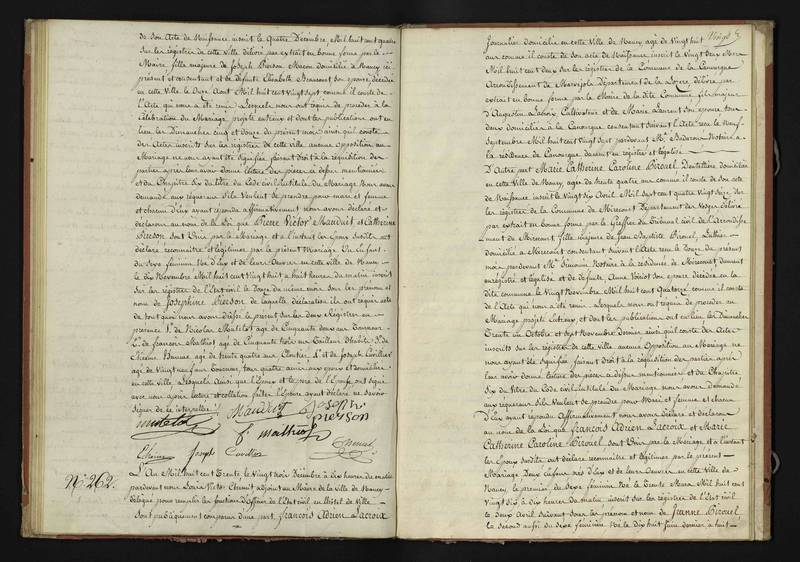 de son Acte de Naissance inscrit le Quatre Décembre, Mil huit cent quatre
sur les régistres de cette Ville délivré par extrait en bonne forme par le
Maire fille majeure de Joseph Pierson Maçon domicilié à Nancy ici
présent et consentant et de défunte Elisabeth son épouse, décédée
en cette Ville le Onze Aout Mil huit cent vingt sept comme il conste de
l'Acte qui nous a été remis. Lesquels nous ont requis de procéder à la
célébration du Mariage projeté entr'eux et dont les publications ont eu
lieu les Dimanches cinq et douze du présent mois ainsi qu'il conste
des Actes inscrits sur les registres de cette ville aucune opposition au
Mariage ne nous ayant été signifiée, faisant droit à la réquisition des
parties après leur avoir donné lecture des pièces ci dessus mentionnées
et du Chapitre Six du titre du Code civil intitulé du Mariage Nous avons
demandé aux requérans s'ils veulent se prendre pour mari et femme et
chacun d'eux ayant répondu affirmativement nous avons déclaré et
déclarons au nom de la Loi que Pierre Victor Mauduit et Catherine
Pierson sont Unis par le Mariage et à l'instant les Epoux susdits ont
déclaré reconnaitre et légitimer par le présent Mariage Un Enfant
du Sexe féminin Né d'eux et de leurs Œuvres en cette ville de Nancy
le dix Novembre Mil huit cent Vingt huit à huit heures du matin inscrit
sur les registres de l'Etat civil le Douze du même mois sous les prénom et
nom de Joséphine Pierson de laquelle déclaration ils ont requis acte
de tout quoi nous avons dressé le présent sur les deux Registres en
présence 1° de Nicolas Mutelot agé de Cinquante deux ans
2° de François Mathieu agé de Cinquante trois ans Tailleur d'habits 3° de
Etienne agé de trente quatre ans 4° et de Joseph Cuvillier
agé de Vingt neuf ans tous quatre amis aux époux et domiciliés
en cette ville. Lesquels ainsi que l'Epoux et le père de l'Epouse ont signé
avec nous après lecture et collation faites l'Epouse ayant déclaré ne savoir
signer de ce interpellée.
Mauduit Joseph
pierson
mutelot
f. mathieu
Etienne Joseph Cuvillier Chenut
N° 262.
L'An Mil huit cent Trente, le Vingt trois Décembre à dix heures du matin
pardevant nous Louis Victor Chenut adjoint au Maire de la Ville de Nancy
délégué pour remplir les fonctions d'Officier de l'Etat civil en l'hôtel de Ville
sont publiquement comparus d'une part, François Adrien Lacroix
Journalier domicilié en cette Ville de Nancy agé de Vingt huit
ans comme il conste de son acte de Naissance inscrit le Vingt deux
Mil huit cent deux sur les régistres de la Commune de la Canourgue
Arrondissement de Marvejols Département de la Lozère délivré par
extrait en bonne forme par le Maire de la dite Commune fils majeur
d'Augustin Lacroix Cultivateur et de Marie Laurent son épouse tous
deux domiciliés à la Canourgue consentant suivant l'Acte reçu le Neuf
Septembre Mil huit cent Vingt sept pardevant Me Notaire à
la résidence de Canourgue dûment enregistré et légalisé
D'autre part Marie Catherine Caroline Pirouel Dentellière domiciliée
en cette Ville de Nancy agée de trente quatre ans comme il conste de son acte
de Naissance inscrit le Vingt six Avril Mil sept cent quatre vingt seize sur
les registres de la Commune de Mirecourt Département des Vosges délivré
par extrait en bonne forme par le Greffier du Tribunal civil de l'Arrondisse
ment de Mirecourt fille majeure de Jean Baptiste Pirouel, Luthier
domicilié à Mirecourt consentant suivant l'Acte reçu le Douze du présent
mois pardevant Me Simonin Notaire à la résidence de Mirecourt dûment
enregistré et légalisé et de défunte Anne son épouse décédée en la
dite commune le Vingt Novembre Mil huit cent Quatorze comme il conste
de l'Acte qui nous a été remis. Lesquels nous ont requis de procéder au
Mariage projeté entr'eux et dont les publications ont eu lieu les Dimanches
Trente un Octobre et sept Novembre Dernier ainsi qu'il conste des Actes
inscrits sur les registres de cette ville aucune Opposition au Mariage ne
nous ayant été signifiée faisant Droit à la réquisition des parties après
leur avoir donné lecture des pièces ci dessus mentionnées et du Chapitre
Six du titre du Code civil intitulé du Mariage nous avons demandé
aux requérans s'ils Veulent se prendre pour Mari et femme et chacun
D'eux ayant répondu Affirmativement nous avons déclaré et déclarons
au nom de la Loi que François Adrien Lacroix et Marie
Catherine Caroline Pirouel sont Unis par le Mariage et à l'instant
les Epoux susdits ont déclaré reconnaitre et légitimer par le présent
Mariage Deux Enfans nés d'eux et de leurs Œuvres en cette ville de
Nancy, le premier du sexe féminin Né le Trente Mars Mil huit cent
Vingt six à dix heures du matin inscrit sur les registres de l'Etat civil
le deux Avril suivant sous les prénom et nom de Jeanne Pirouel
le second aussi du sexe féminin Né le dix huit Juin dernier à huit